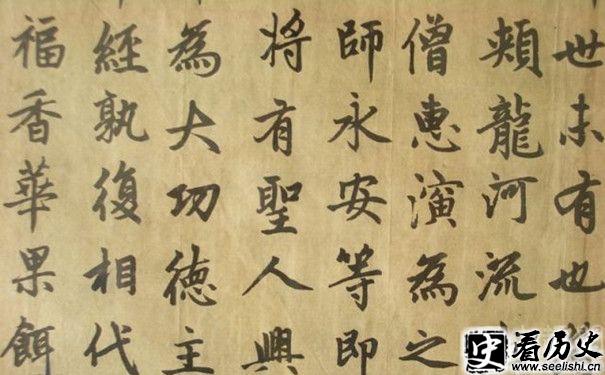 世未有也
頰龍河流
僧惠演為之
師永安等即
將有聖人興
為大功德主
經孰復相代
福香華果餌
史 看历史
www.seelishi.cn